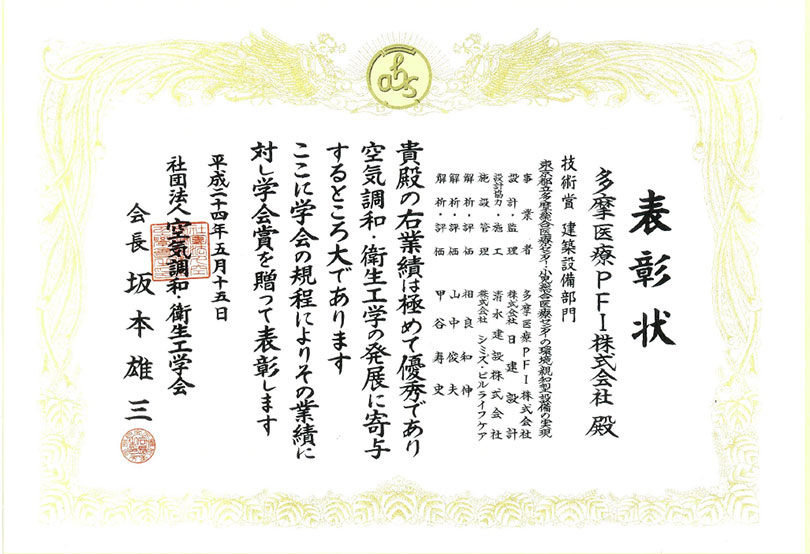 表彰状
多摩医療PFI株式会社 殿
技術賞 建築設備部門
東京都立多摩総合医療センター・小児総合医療センターの環境親和型設備の実現
事業者 多摩医療PFI株式会社
設計・監理 株式会社日建設計
設計協力・施工 清水建設株式会社
施設管理 株式会社シミズ・ビルライフケア
解析・評価 相良和伸
解析・評価 山中俊夫
解析・評価 甲谷寿史
貴殿の右業績は極めて優秀であり
空気調和・衛生工学の発展に寄与
するところ大であります
ここに学会の規程によりその業績に
対し学会賞を贈って表彰します
平成二十四年五月十五日
社団法人 空気調和・衛生工学会
会長 坂本雄三